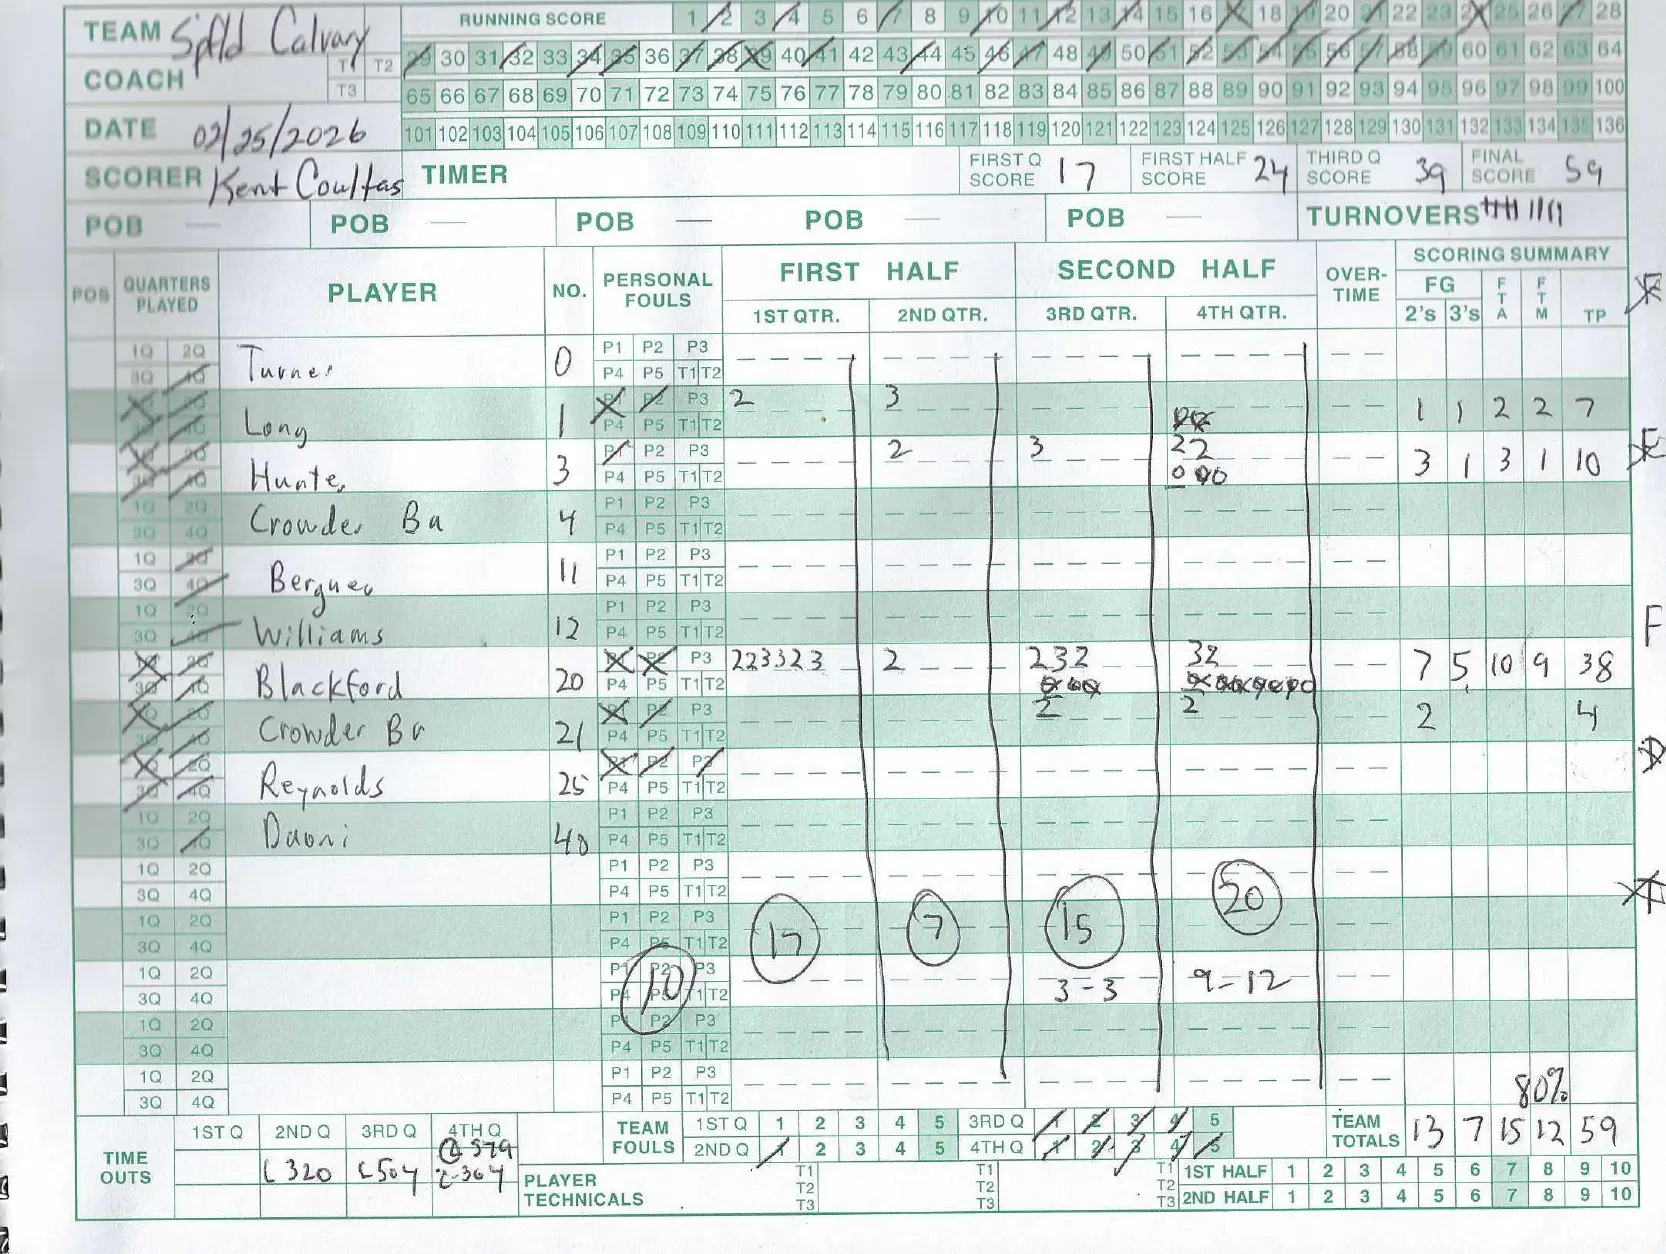 TEAM Spfld Calvary RUNNING SCORE 1 2 3 4 5 6 7 8 9 10 11 12 13 14 15 16 17 18 19 20 21 22 23 24 25 26 27 28
T1 T2 29 30 31 32 33 34 35 36 37 38 39 40 41 42 43 44 45 46 47 48 49 50 51 52 53 54 55 56 57 58 59 60 61 62 63 64
COACH T3 65 66 67 68 69 70 71 72 73 74 75 76 77 78 79 80 81 82 83 84 85 86 87 88 89 90 91 92 93 94 95 96 97 98 99 100
DATE 02/25/2026 101 102 103 104 105 106 107 108 109 110 111 112 113 114 115 116 117 118 119 120 121 122 123 124 125 126 127 128 129 130 131 132 133 134 135 136
SCORER Kent Coultas TIMER FIRST Q SCORE 17 FIRST HALF SCORE 24 THIRD Q SCORE 39 FINAL SCORE 59
POB — POB — POB — POB — POB — TURNOVERS
POS QUARTERS PLAYED PLAYER NO. PERSONAL FOULS FIRST HALF SECOND HALF OVER-TIME SCORING SUMMARY
1ST QTR. 2ND QTR. 3RD QTR. 4TH QTR. FG 2's 3's FTA FTM TP
1Q 2Q 3Q 4Q Turner 0 P1 P2 P3 P4 P5 T1 T2
Long 1 P1 P2 P3 P4 P5 T1 T2 2 3 1 1 2 2 7
Hunter 3 P1 P2 P3 P4 P5 T1 T2 2 3 22 3 1 3 1 10
1Q 2Q 3Q 4Q Crowder Ba 4 P1 P2 P3 P4 P5 T1 T2
1Q 2Q 3Q 4Q 11 P1 P2 P3 P4 P5 T1 T2
1Q 2Q 3Q 4Q Williams 12 P1 P2 P3 P4 P5 T1 T2
F
1Q 2Q 3Q 4Q Blackford 20 P1 P2 P3 P4 P5 T1 T2 223323 2 232 32 7 5 10 9 38
1Q 2Q 3Q 4Q Crowder Br 21 P1 P2 P3 P4 P5 T1 T2 2 2 2 4
1Q 2Q 3Q 4Q Reynolds 25 P1 P2 P3 P4 P5 T1 T2
1Q 2Q 3Q 4Q 40 P1 P2 P3 P4 P5 T1 T2
1Q 2Q 3Q 4Q P1 P2 P3 P4 P5 T1 T2 20
1Q 2Q 3Q 4Q P1 P2 P3 P4 P5 T1 T2 17 7 15
1Q 2Q 3Q 4Q P1 P2 P3 P4 P5 T1 T2 10 3-3 9-12
1Q 2Q 3Q 4Q P1 P2 P3 P4 P5 T1 T2
1Q 2Q 3Q 4Q P1 P2 P3 P4 P5 T1 T2 80%
TIME OUTS 1ST Q 2ND Q 3RD Q 4TH Q TEAM FOULS 1ST Q 1 2 3 4 5 3RD Q 1 2 3 4 5 TEAM TOTALS 13 7 15 12 59
2ND Q 1 2 3 4 5 4TH Q 1 2 3 4 5
L 320 L 504
PLAYER TECHNICALS T1 T2 T3 T1 T2 T3 T1 T2 T3 1ST HALF 1 2 3 4 5 6 7 8 9 10
2ND HALF 1 2 3 4 5 6 7 8 9 10